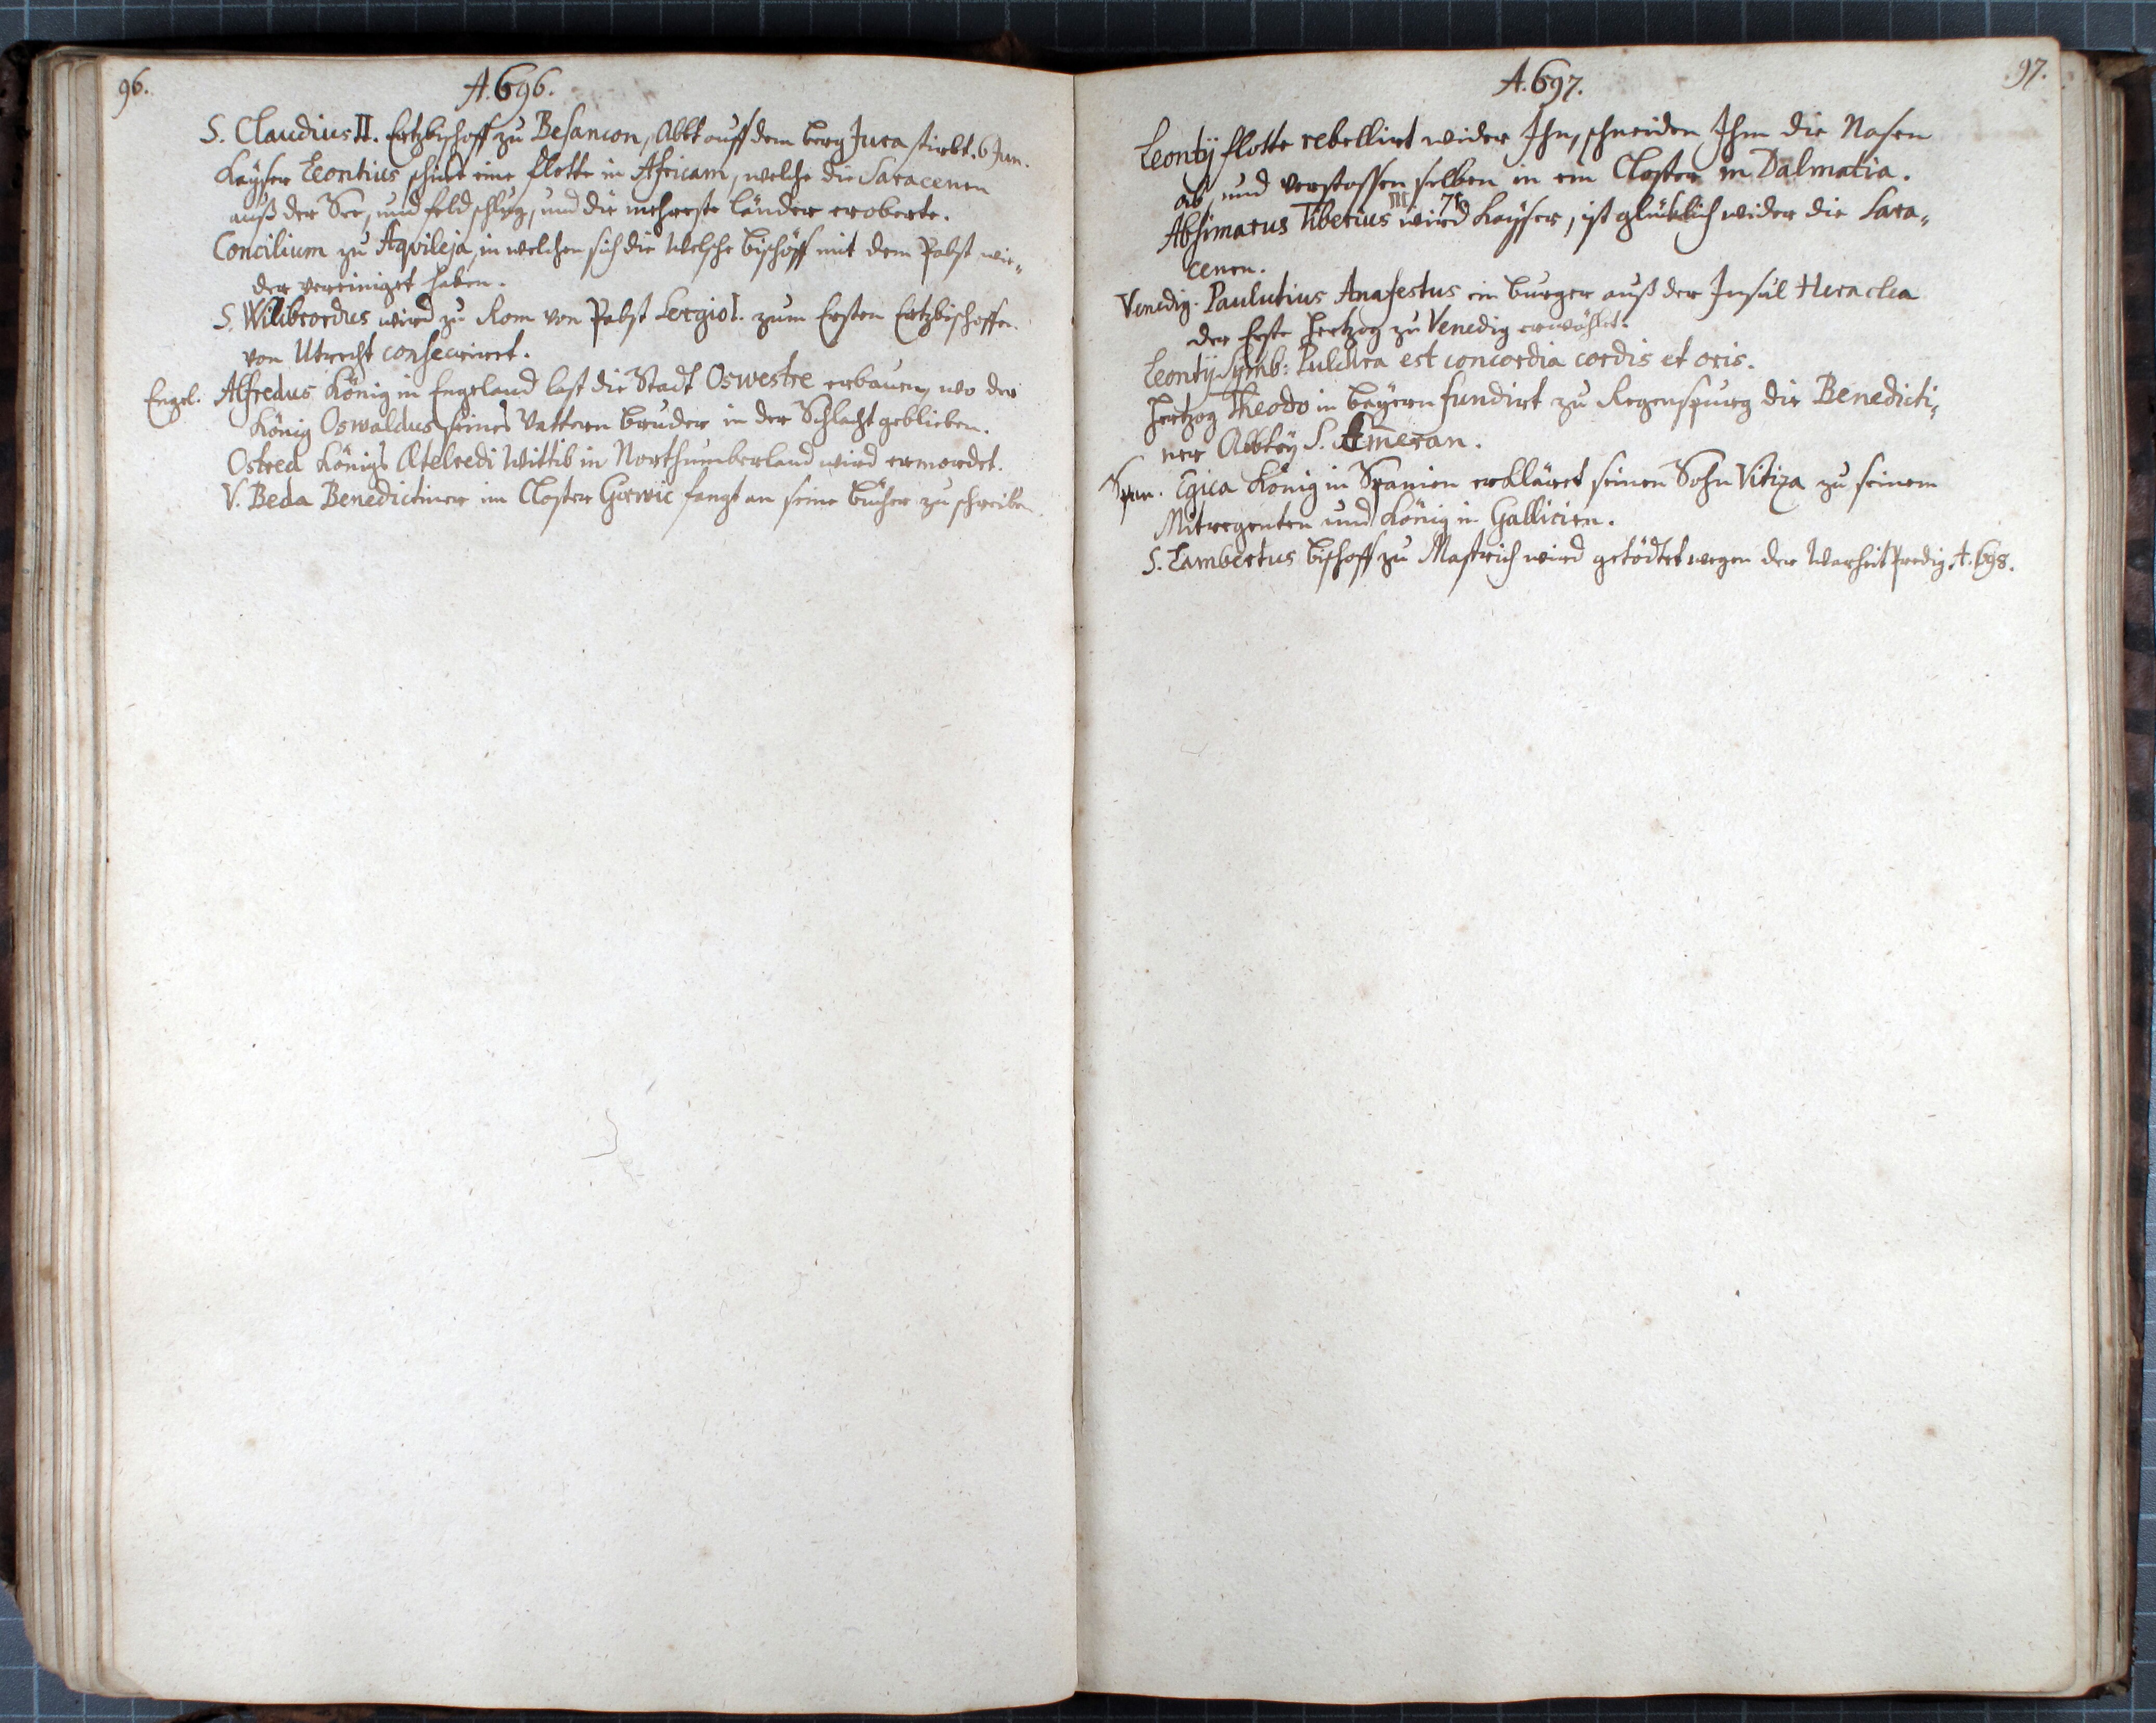 96.
A. 696.
S. Claudius II. Ertzbischoff zu Besancon, Abbt auff dem berg Jura stirbt. 6 Jun.
Kayser Leontius schickt eine flotte in Africam, welche die Saracenen
auß der See, und feld schlug, und die mehreste länder eroberte.
Concilium zu Aqvileja, in welchen sich die Welsche bischöff mit dem Pabst wie„
der vereiniget haben.
S. Wilibrordus wird zu Rom von Pabst Sergio I. zum Ersten Ertzbischoffen
von Utrecht consecrirt.
Engel. Alfredus König in Engeland last die Stadt Oswestre erbauen, wo der
König Oswaldus seines Vattern bruder in der Schlacht geblieben.
Ostred Königs Etelredi Wittib in Northumberland wird ermordet.
V. Beda Benedictiner im Closter Girwic fangt an seine bücher zu schreiben.
97.
A. 697.
Leontÿ flotte rebellirt wider Ihn, schneiden Ihm die Nasen
ab, und verstossen selben in ein Closter in Dalmatia.
III. 71
Absimarus Tiberius wird Kayser, ist glücklich wider die Sara„
cenen.
Venedig. Paulutius Anafestus ein burger auß der Insul Heraclea
der Erste Hertzog zu Venedig erwählet.
Leontÿ Symb: Pulchra est concordia cordis et oris.
Hertzog Theodo in Bayern fundirt zu Regenspurg die Benedicti„
ner Abbteÿ S. Emeran.
Span. Egica König in Spanien erkläret seinen Sohn Vitiza zu seinem
Mitregenten und König in Gallicien.
S. Lambertus bischoff zu Mastrich wird getödtet wegen der Warheit Predig. A. 698.